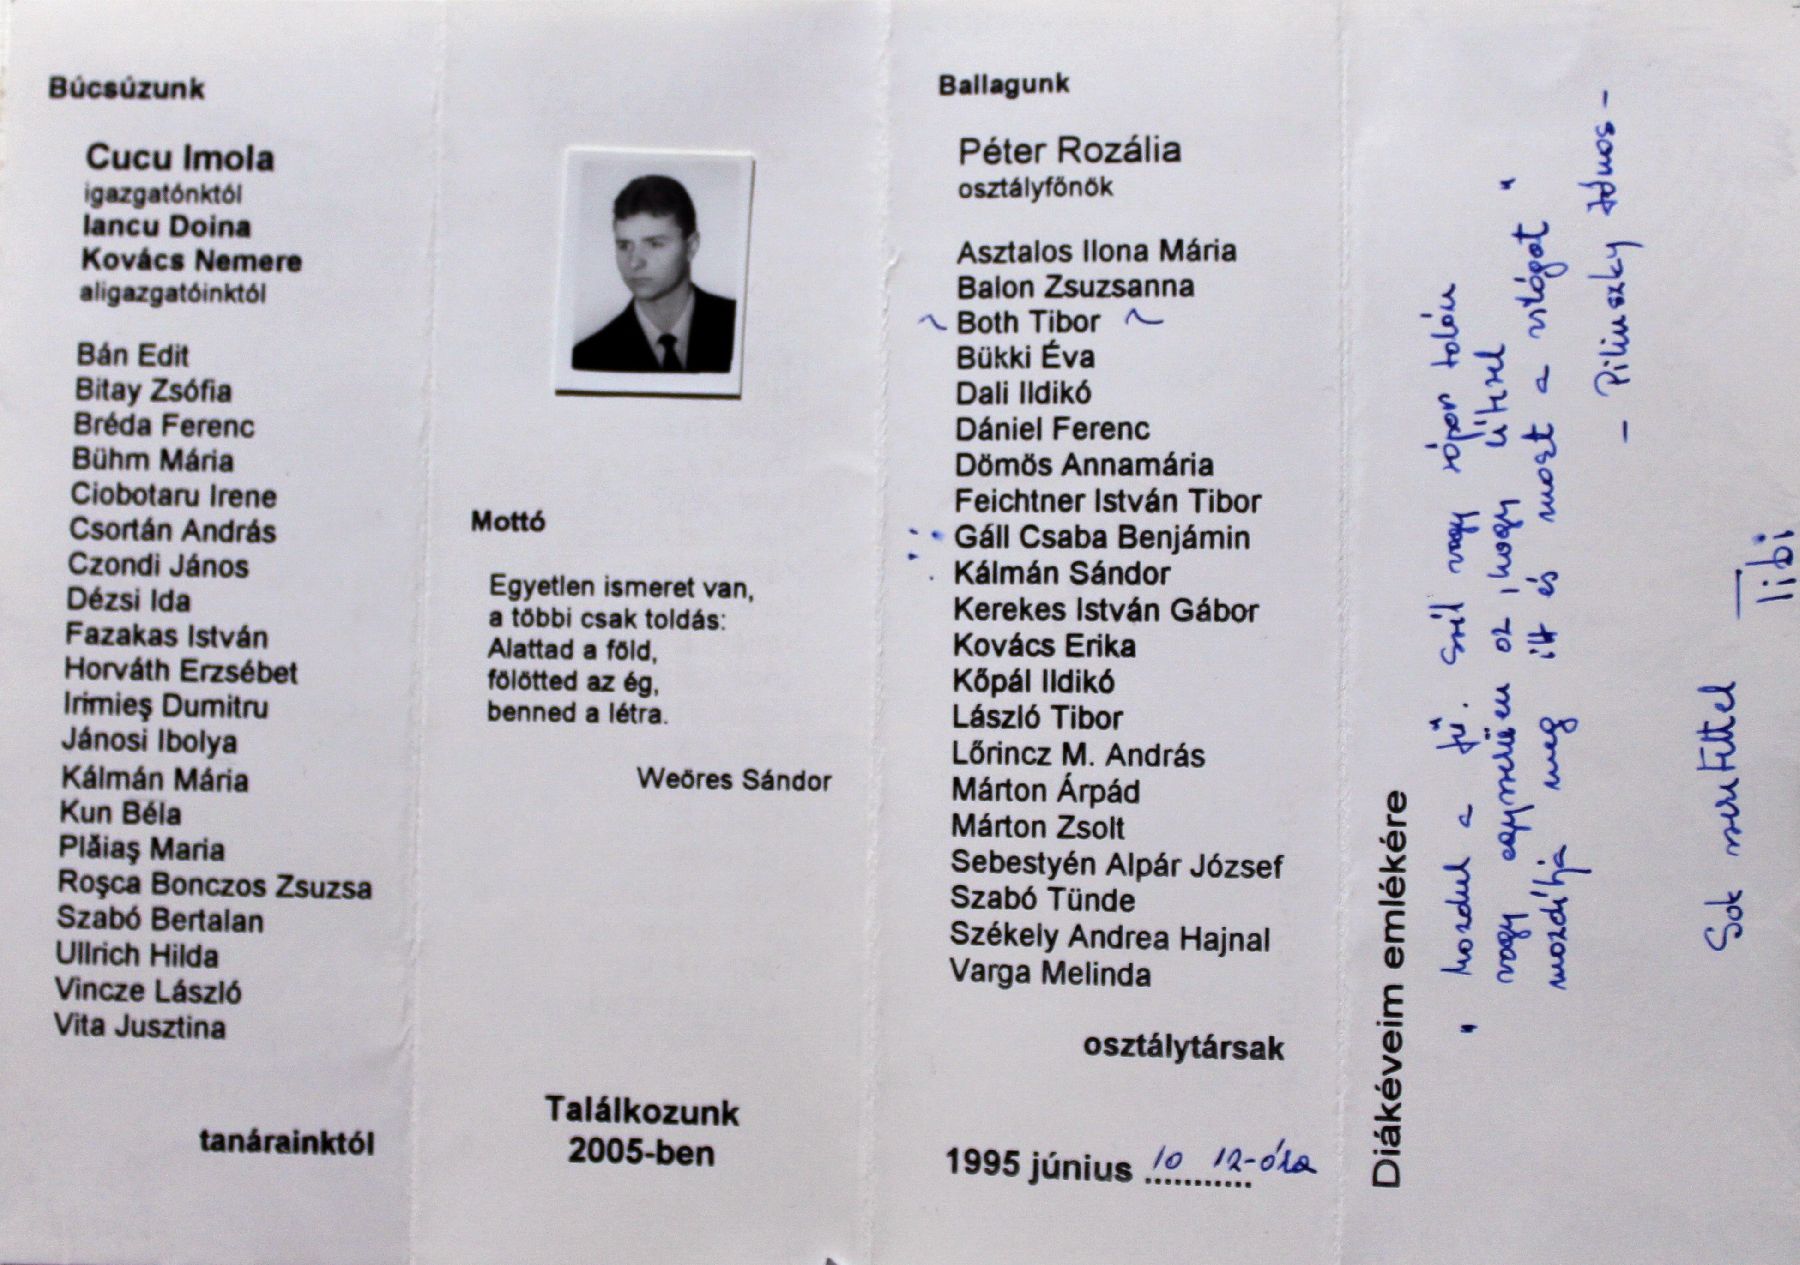 Búcsúzunk
Cucu Imola
igazgatónktól
Iancu Doina
Kovács Nemere
aligazgatóinktól
Bán Edit
Bitay Zsófia
Bréda Ferenc
Bühm Mária
Ciobotaru Irene
Csortán András
Czondi János
Dézsi Ida
Fazakas István
Horváth Erzsébet
Irimieş Dumitru
Jánosi Ibolya
Kálmán Mária
Kun Béla
Plăiaş Maria
Roşca Bonczos Zsuzsa
Szabó Bertalan
Ullrich Hilda
Vincze László
Vita Jusztina
tanárainktól
Mottó
Egyetlen ismeret van,
a többi csak toldás:
Alattad a föld,
fölötted az ég,
benned a létra.
Weöres Sándor
Találkozunk
2005-ben
Ballagunk
Péter Rozália
osztályfőnök
Asztalos Ilona Mária
Balon Zsuzsanna
~ Both Tibor ~
Bükki Éva
Dali Ildikó
Dániel Ferenc
Dömös Annamária
Feichtner István Tibor
Gáll Csaba Benjámin
Kálmán Sándor
Kerekes István Gábor
Kovács Erika
Kőpál Ildikó
László Tibor
Lőrincz M. András
Márton Árpád
Márton Zsolt
Sebestyén Alpár József
Szabó Tünde
Székely Andrea Hajnal
Varga Melinda
osztálytársak
1995 június 10 12-óra
Diákéveim emlékére
"Mozdul a fű. Szél vagy zápor talán
vagy egyszerűen az, hogy létezel
mozdítja meg itt és most a világot"
- Pilinszky János -
Sok szeretettel
Tibi